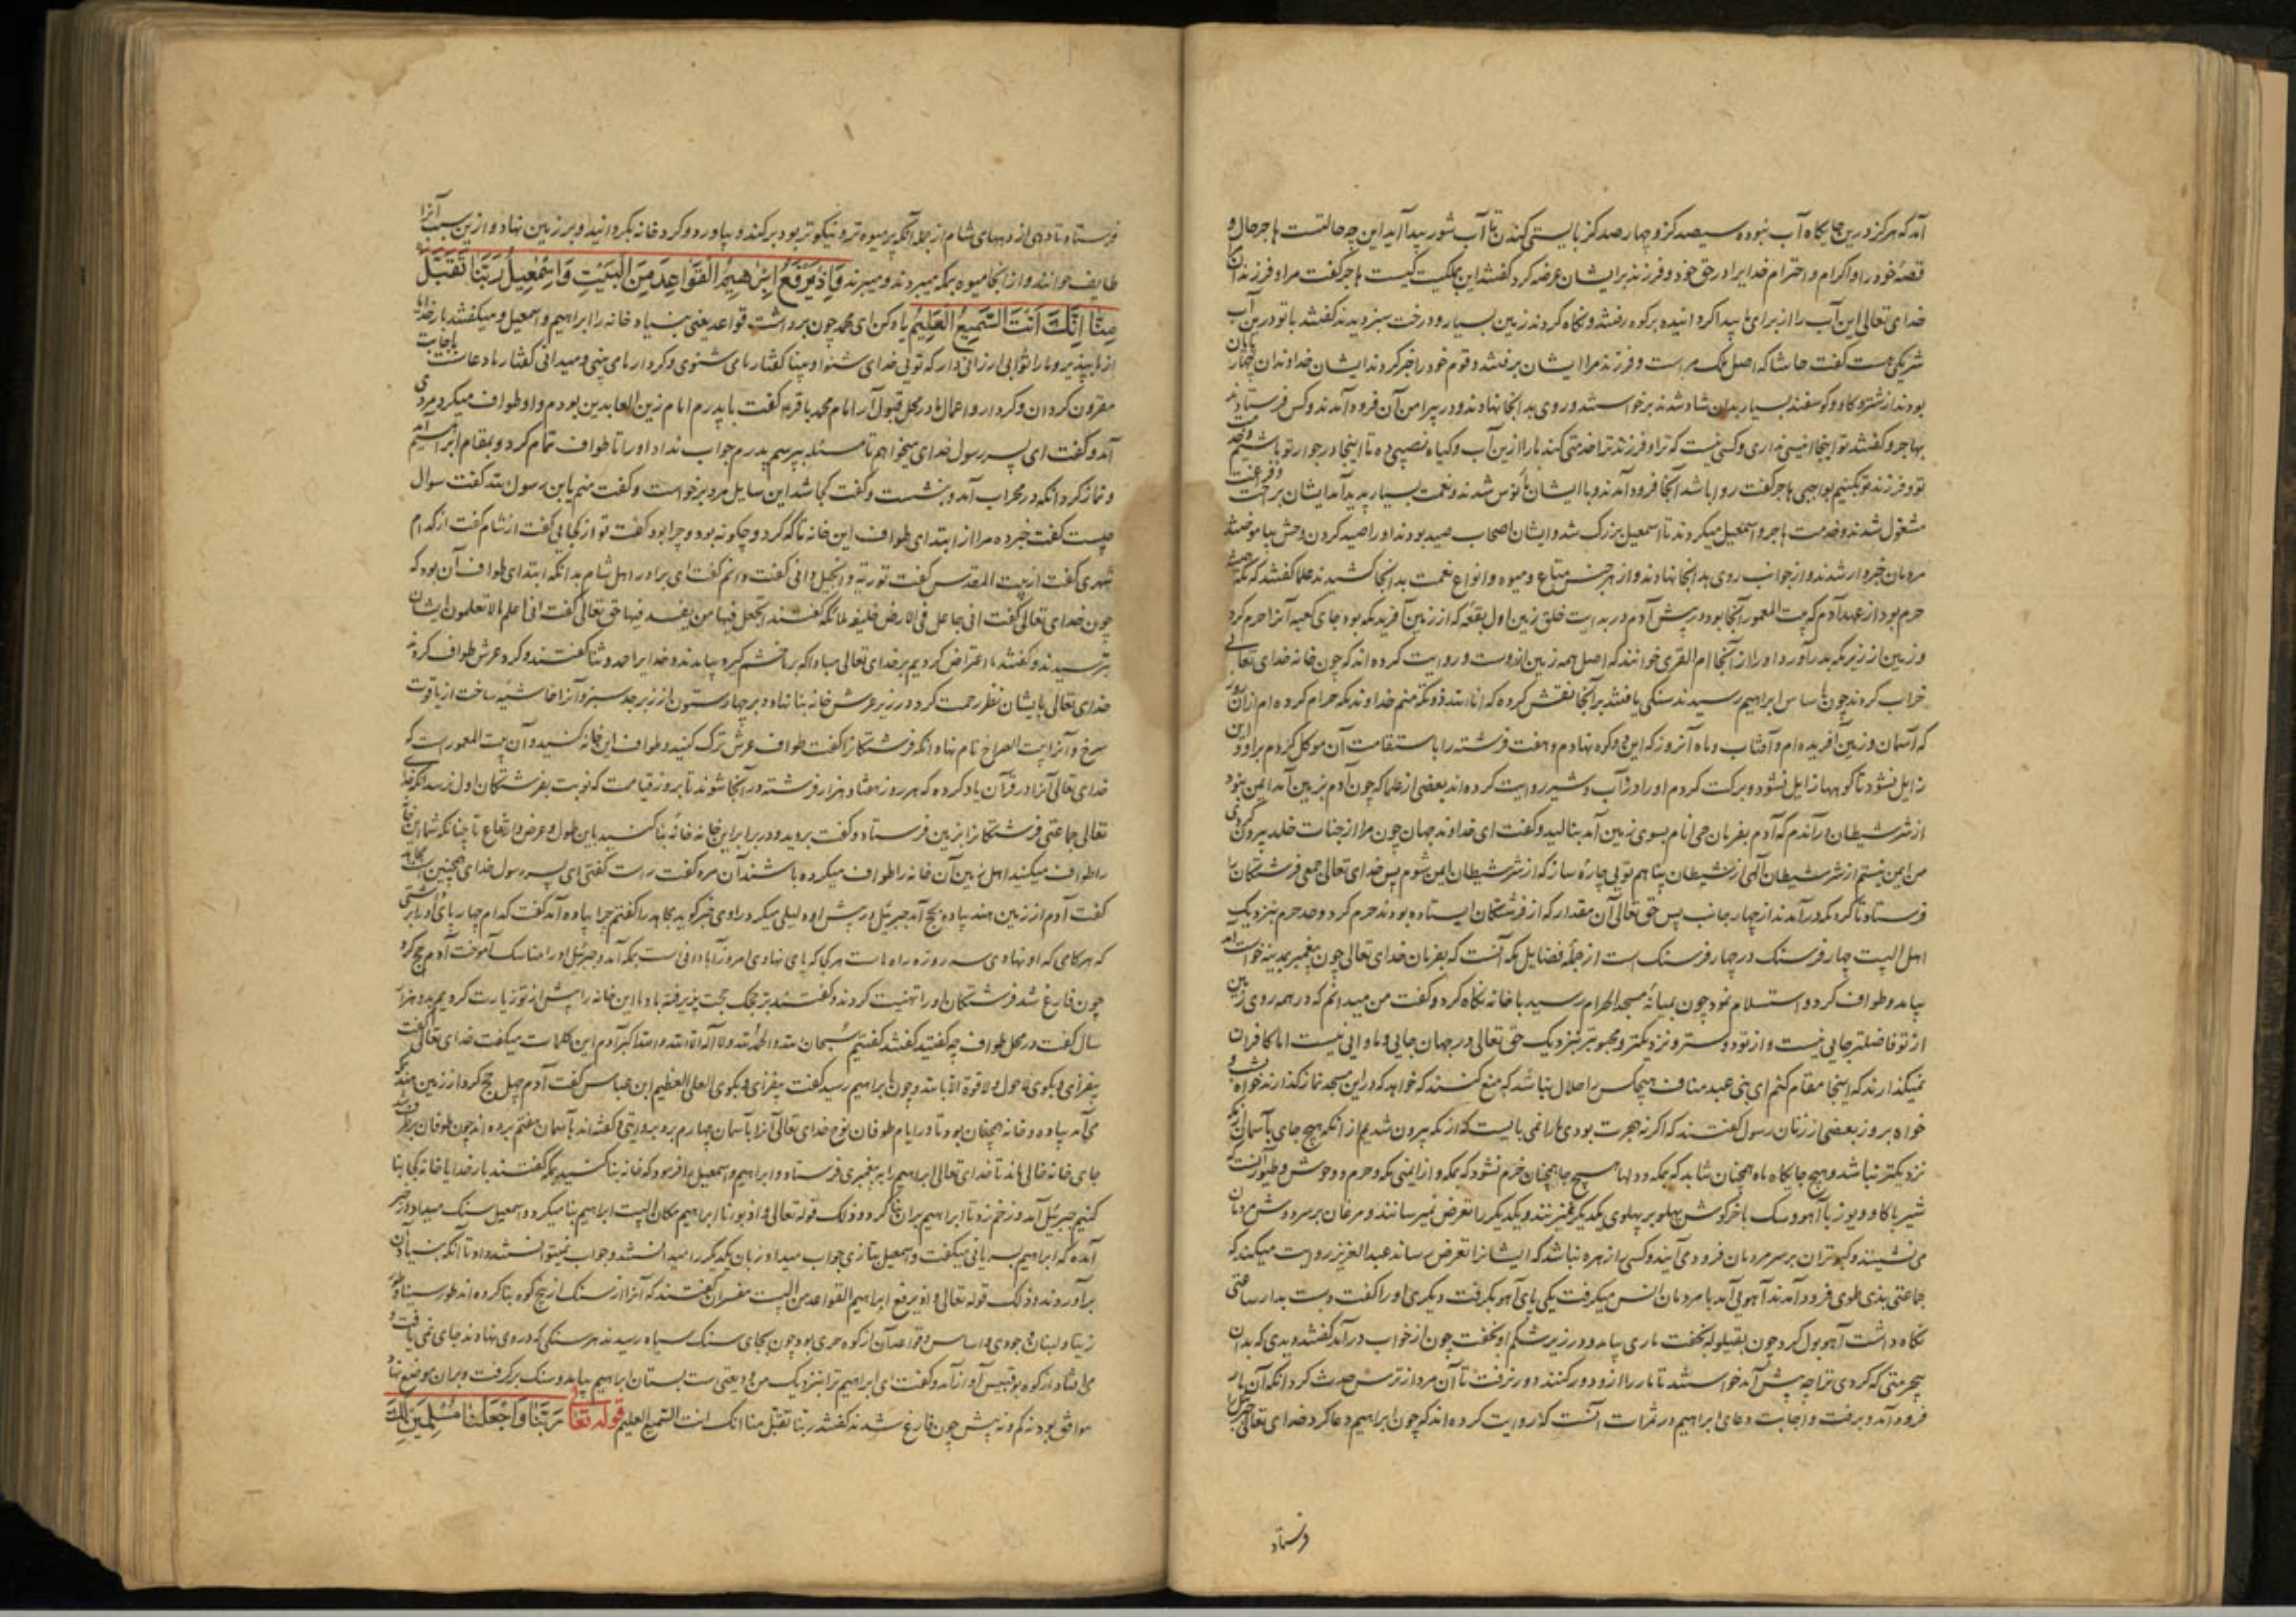 آمد که هرگز درین جایگاه آب نبوده سیصد گز و چهار صد گز بایستی کندن تا آب شور پیدا آید این چه حالتست هاجر حال و
قصهٔ خود را و اکرام و احترام خدایرا در حق خود و فرزند بر ایشان عرضه کرد گفتند این ملکیت کیست هاجر گفت مرا و فرزند
خدای تعالی این آب را از برای ما پیدا گردانیده بر کوه رفتند و نگاه کردند زمین بسیار و درخت سبز دیدند گفتند با تو درین آب
شریکی هست گفت حاشا که اصل ملک مراست و فرزند مرا ایشان برفتند و قوم خود را خبر کردند ایشان خداوندان چهار پایان
بودند از شتر و گاو و گوسفند بسیار بدان شاد شدند برخواستند و روی بدانجا نهادند و در پیرامن آن فرود آمدند و کس فرستادند
بهاجر و گفتند تو اینجا انیسی نداری و کسی نیست که ترا و فرزند ترا خدمتی کند ما را ازین آب و گیاه نصیبی ده تا اینجا در جوار تو باشیم
تو و فرزند تو بکنیم بواجبی هاجر گفت روا باشد آنجا فرود آمدند و با ایشان مأنوس شدند و نعمت بسیار پدید آمد ایشان براحت
مشغول شدند و خدمت هاجر و اسمعیل میکردند تا اسمعیل بزرگ شد و ایشان اصحاب صید بودند او را صید کردن وحش بیاموختند
مردمان خبردار شدند و از جوانب روی بدانجا نهادند و از هر جنس متاع و میوه و انواع نعمت بدانجا کشیدند علما گفتند که مکه
حرم بود از عهد آدم که بیت المعمور آنجا بود و پیش آدم در بدایت خلق زمین اول بقعه که از زمین آفرید مکه بود جای کعبه آنرا حرم کرد
و زمین از زیر مکه بدر آورد او را از آنجا ام القری خوانند که اصل همه زمین ازوست و روایت کرده اند که چون خانه خدای تعالی
خراب کردند چون باساس ابراهیم رسیدند سنگی یافتند بر آنجا نقش کرده که انا الله ذو بکة منم خداوند مکه حرام کرده ام از آن روز
که آسمان و زمین آفریده ام و آفتاب و ماه آنروز که این دو کوه نهادم و هفت فرشته را باستقامت آن موکل کردم
زایل نشود تا کوهها زایل نشود و برکت کردم او را در آب و شیر روایت کرده اند بعضی از علما که چون آدم بزمین آمد ایمن نبود
از شر شیطان آدم بفرمان حی انام بسوی زمین آمد بنالید و گفت ای خداوند جهان چون مرا از جنات خلد بیرون کردی
من ایمن نیستم از شر شیطان الهی از شیطان پناهم تویی چاره ساز که از شر شیطان ایمن شوم پس خدای تعالی جمعی فرشتگان را
فرستاد تا گرد مکه در آمدند از چهار جانب پس حق تعالی آن مقدار که از فرشتگان ایستاده بودند حرم کرد و حد حرم بنزدیک
اهل البیت چهار فرسنگ در چهار فرسنگ است از جملهٔ فضایل مکه آنست که بفرمان خدای تعالی چون پیغمبر بمدینه خواست آمد
بیامد و طواف کرد و استلام نمود چون بمیانهٔ مسجد الحرام رسید با خانه نگاه کرد و گفت من میدانم که در همه روی زمین
از تو فاضلتر جایی نیست و از تو دوستر و نزدیکتر و محبوبتر بنزدیک حق تعالی در جهان جایی و ماوایی نیست اما کافران
نمیگذارند که اینجا مقام کنم ای بنی عبد مناف هیچکس را حلال نباشد که منع کنند که خواهد که در این مسجد نماز گذارند خواه شب و
خواه بروز بعضی از زنان رسول گفتند که اگر نه هجرت بودی ما را نمی بایست که از مکه بیرون شدیم از انکه هیچ جای بآسمان
نزدیکتر نباشد و هیچ جایگاه ماه همچنان نتابد که بمکه و دلها هیچ جا همچنان خرم نشود که بمکه و از ایمنی مکه و حرم و وحوش و طیور آنست که
شیر با گاو و یوز با آهو و سگ با خرگوش پهلو بر پهلوی یکدیگر میزنند و یکدیگر را تعرض نمیرسانند و مرغان بر سر و دوش مردمان
می نشینند و کبوتران بر سر مردمان فرود می آیند و کسی را زهره نباشد که ایشانرا تعرض رساند عبد العزیز روایت میکند که
جماعتی بذی طوی فرود آمدند آهویی آمد با مردمان انس میگرفت یکی پای آهو بگرفت دیگری او را گفت دست بدار ساعتی
نگاه داشت آهو بول کرد چون بقیلوله بخفت ماری بیامد و در زیر شکم او بخفت چون از خواب در آمد گفتند دیدی که بدان
بیحرمتی که کردی ترا چه پیش آمد خواستند تا مار را ازو دور کنند دور نرفت تا آن مرد از ترس حدث کرد انکه آن مار
فرود آمد و برفت و اجابت دعای ابراهیم در ثمرات آنست که روایت کرده اند که چون ابراهیم دعا کرد خدای تعالی جبرئیل را
فرستاد
فرستاد تا دهی از دیههای شام از جمله آنکه پر میوه تر و نیکوتر بود برکند و بیاورد و گرد خانه بگردانید و بر زمین نهاد و ازین سبب آنرا
طایف خوانند و از آنجا میوه بمکه میبردند و میبرند وَاِذْ یَرْفَعُ اِبْرٰهِیمُ الْقَوَاعِدَ مِنَ الْبَیْتِ وَاِسْمٰعِیلُ رَبَّنَا تَقَبَّلْ
مِنَّا اِنَّكَ اَنْتَ السَّمِیعُ الْعَلِیمُ یاد کن ای محمد چون برداشت قواعد یعنی بنیاد خانه را ابراهیم و اسمعیل و میگفتند بار خدایا
از ما بپذیر و ما را ثوابی ارزانی دار که تویی خدای شنوا و بینا گفتار ما می شنوی و کردار ما می بینی و میدانی گفتار ما دعاست باجابت
مقرون گردان و کردار و اعمال ما در محل قبول آر امام محمد باقر گفت با پدرم امام زین العابدین بودم و او طواف میکرد مردی
آمد و گفت ای پسر رسول خدای میخواهم تا مسئله بپرسم پدرم جواب نداد او را تا طواف تمام کرد و بمقام ابراهیم آمد
و نماز کرد انکه در محراب آمد و بنشست و گفت کجا شد این سایل مرد برخواست و گفت منم یا بن رسول الله گفت سوال
چیست گفت خبر ده مرا از ابتدای طواف این خانه تا که کرد و چگونه بود و چرا بود گفت تو از کجایی گفت از شام گفت از کدام
شهری گفت از بیت المقدس گفت توریة و انجیل دانی گفت دانم گفت ای برادر اهل شام بدانکه ابتدای طواف آن بود که
چون خدای تعالی گفت انی جاعل فی الارض خلیفه ملائکه گفتند اتجعل فیها من یفسد فیها حق تعالی گفت انی اعلم ما لا تعلمون ایشان
بترسیدند و گفتند ما اعتراض کردیم بر خدای تعالی مبادا که بر ما خشم گیرد بیامدند و خدایرا حمد و ثنا گفتند و گرد عرش طواف کردند
خدای تعالی بایشان نظر رحمت کرد و در زیر عرش خانه بنا نهاد و بر چهار ستون از زبرجد سبز و آنرا حاشیه ساخت از یاقوت
سرخ و آنرا بیت الضراح نام نهاد انکه فرشتگانرا گفت طواف عرش ترک کنید و طواف این خانه کنید و آن بیت المعمور است که
خدای تعالی آنرا در قرآن یاد کرده که هر روز هفتاد هزار فرشته در آنجا شوند تا بروز قیامت که نوبت بفرشتگان اول نرسد
تعالی جماعتی فرشتگانرا بزمین فرستاد و گفت بروید و در برابر این خانه خانهٔ بنا کنید باین طول و عرض و ارتفاع تا چنانکه شما این خانه
را طواف میکنید اهل زمین آن خانه را طواف میکرده باشند آن مرد گفت راست گفتی ای پسر رسول خدای همچنین است
گفت آدم از زمین هند پیاده بحج آمد جبرئیل در پیش او دلیلی میکرد راوی خبر گوید مجاهد را گفتم چرا پیاده آمد گفت کدام چهار پای او را برداشتی
که هر گامی که او نهادی سه روزه راه است هر کجا که پای نهادی امروز آبادانی است بمکه آمد و جبرئیل او را مناسک آموخت آدم حج کرد
چون فارغ شد فرشتگان او را تهنیت کردند و گفتند بر حجک حجت پذیرفته باد ما این خانه را پیش از تو زیارت کردیم بدو هزار
سال گفت در محل طواف چه گفتید گفتند گفتیم سبحان الله و الحمد لله و لا اله الا الله و الله اکبر آدم این کلمات میگفت خدای تعالی گفت
بیفزای و بگوی لا حول و لا قوة الا بالله و چون بابراهیم رسید گفت بیفزای و بگوی العلی العظیم ابن عباس گفت آدم چهل حج کرد از زمین هند که
می آمد پیاده و خانه همچنان بود تا در ایام طوفان نوح خدای تعالی آنرا بآسمان چهارم برد بروایتی و گفته اند بآسمان هفتم برده اند چون طوفان برطرف شد
جای خانه خالی ماند تا خدای تعالی ابراهیم را به پیغمبری فرستاد و ابراهیم و اسمعیل را فرمود که خانه بنا کنید بمکه گفتند بار خدایا خانه کجا بنا
کنیم جبرئیل آمد و ابراهیم بنا میکرد و اسمعیل سنگ میداد و در خبر
آمده که ابراهیم بسریانی میگفت و اسمعیل بتازی جواب میداد و زبان یکدیگر را میدانستند و جواب نمیتوانستند داد تا آنکه بنیاد آن
برآوردند و ذلک قوله تعالی و اذ یرفع ابراهیم القواعد من البیت مفسران گفتند که آنرا از سنگ از پنج کوه بنا کرده اند طور سینا و طور
زیتا و لبنان و جودی و اساس و قواعد آن از کوه حری بود چون بجای سنگ سیاه رسیدند هر سنگی که در وی نهادند جای نمی یافت و
می افتاد از کوه بوقبیس آواز آمد و گفت ای ابراهیم ترا بنزدیک من ودیعتی هست بستان ابراهیم بیامد و سنگ برگرفت و بران موضع نهاد
موافق بود نه کم و نه بیش چون فارغ شدند گفتند ربنا تقبل منا انک انت السمیع العلیم قوله تعا رَبَّنَا وَاجْعَلْنَا مُسْلِمَیْنِ لَكَ